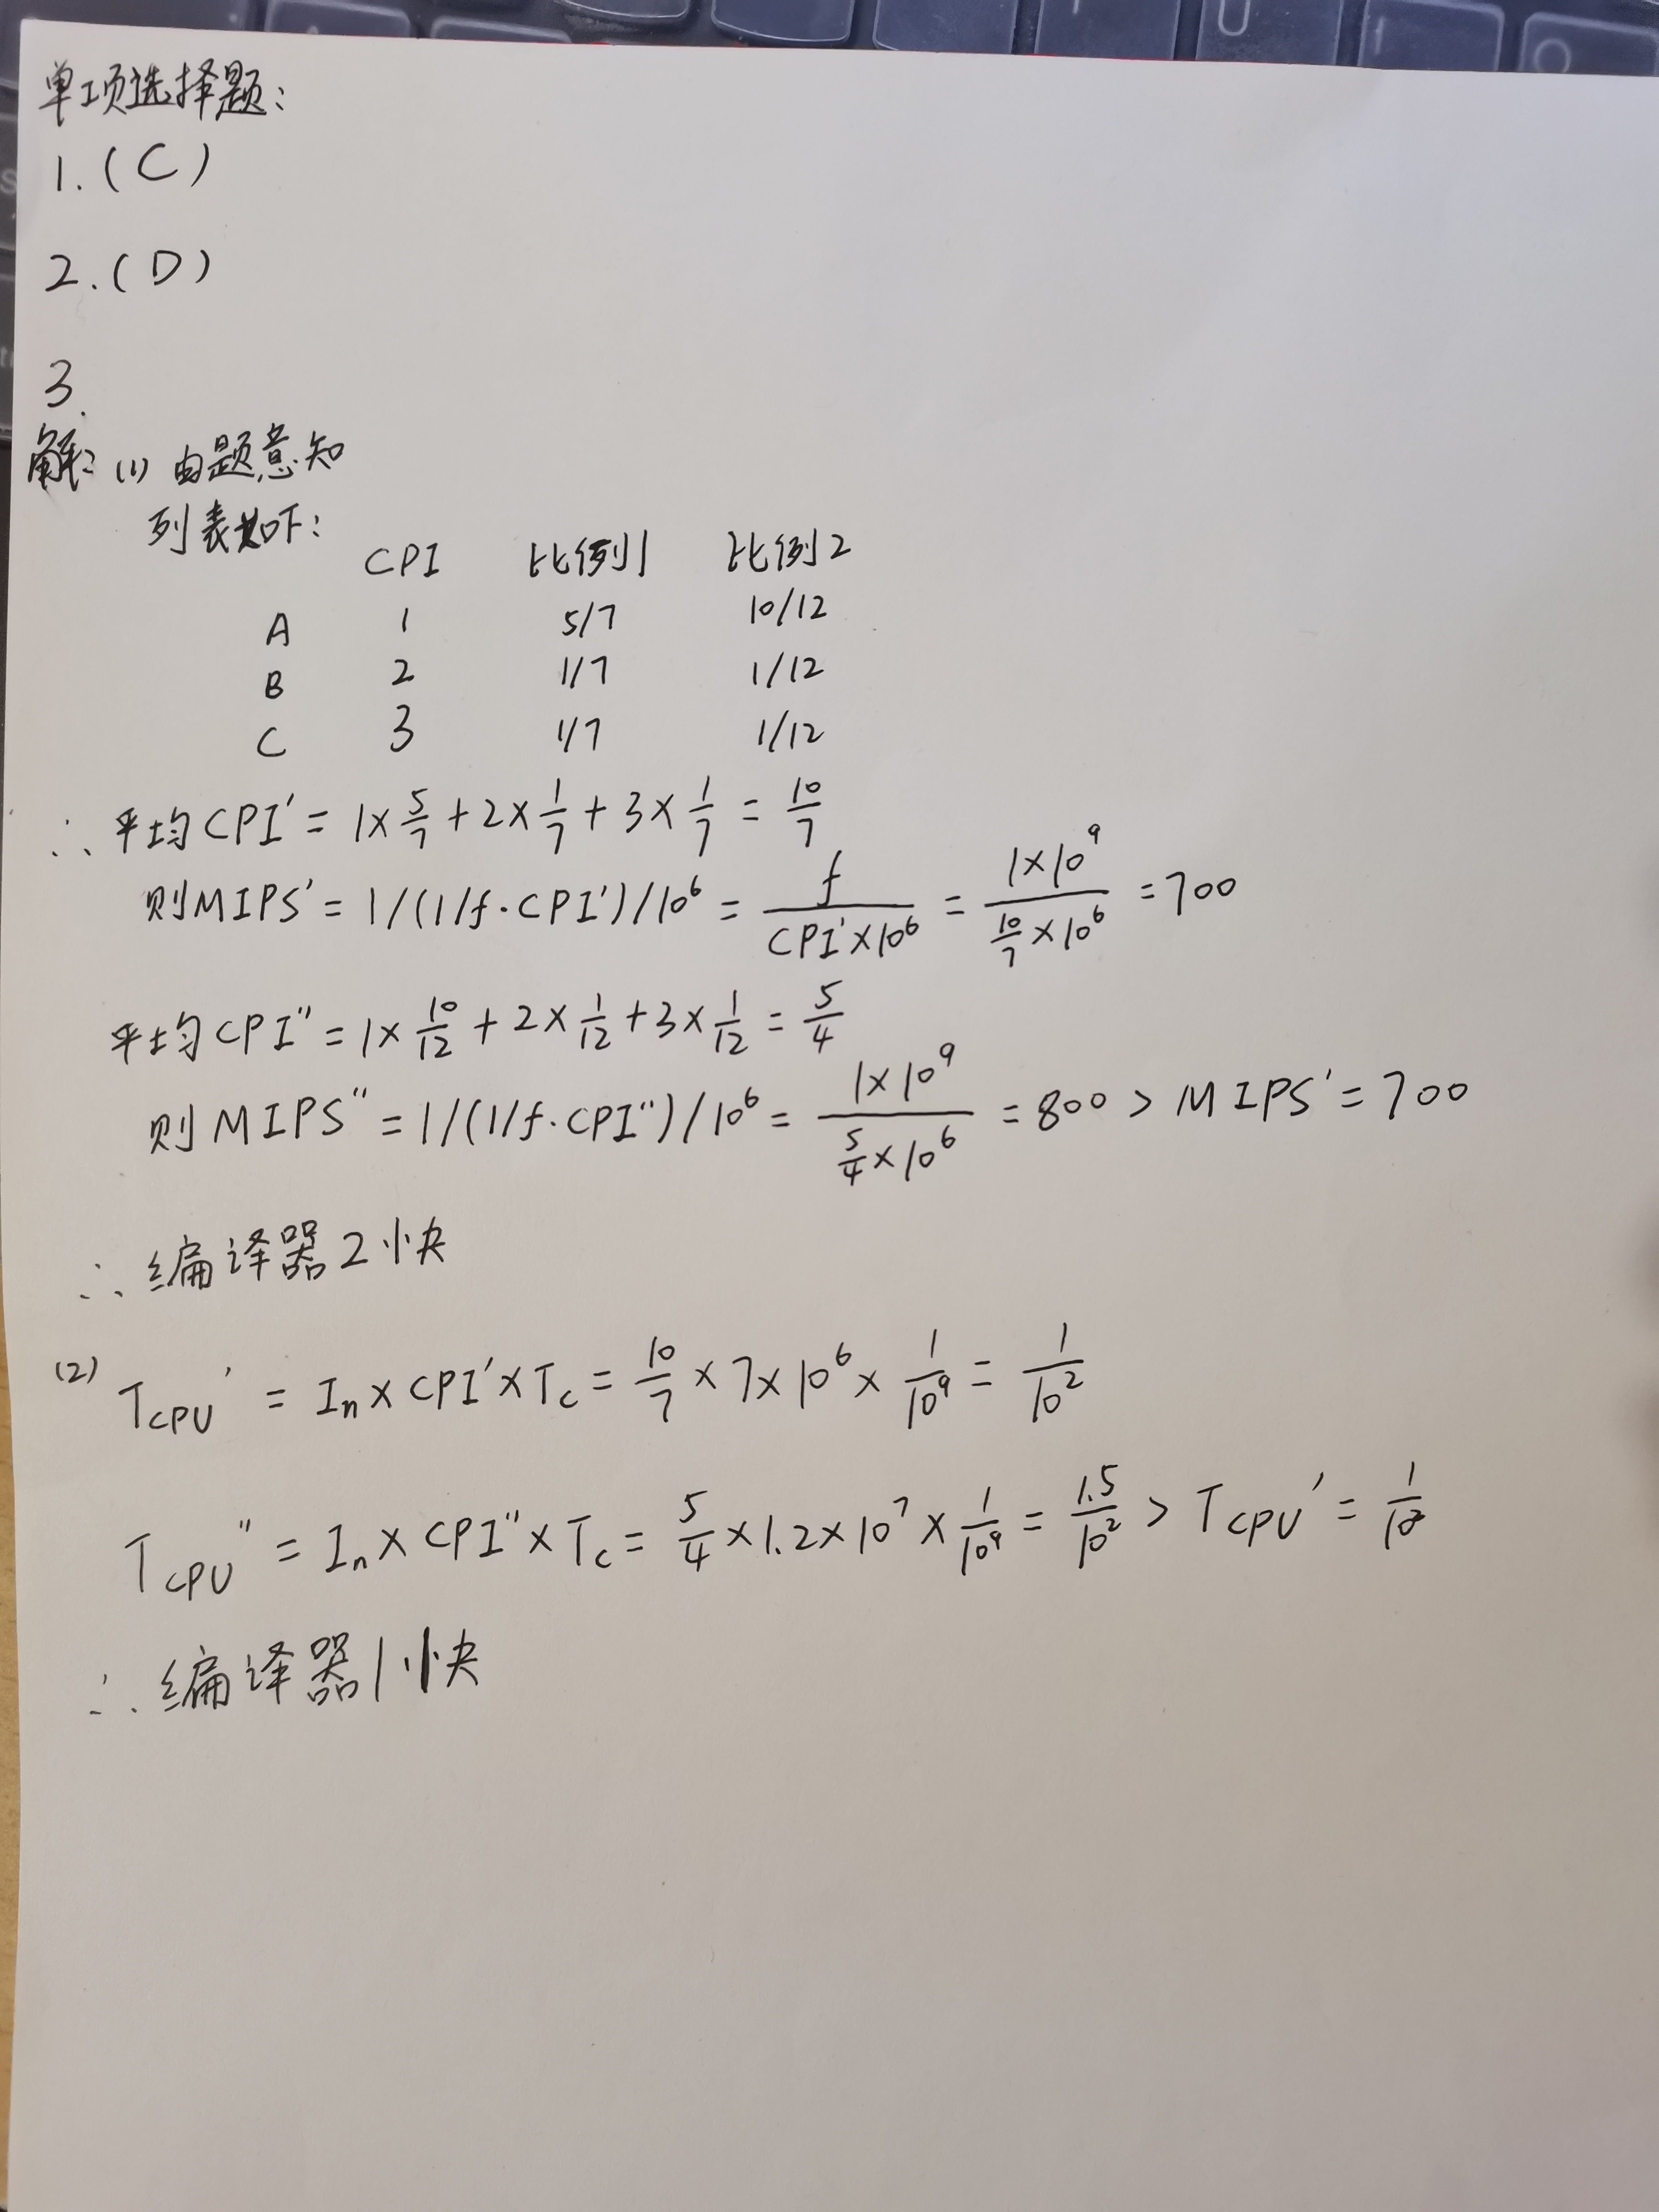 单项选择题:
1.(C)
2.(D)
3.
解: (1) 由题意知
列表如下:
CPI 比例1 比例2
A 1 5/7 10/12
B 2 1/7 1/12
C 3 1/7 1/12
∴ 平均CPI' = 1×5/7 + 2×1/7 + 3×1/7 = 10/7
则MIPS' = 1/(1/f·CPI')/10⁶ = f/(CPI'×10⁶) = (1×10⁹)/(10/7×10⁶) = 700
平均CPI" = 1×10/12 + 2×1/12 + 3×1/12 = 5/4
则MIPS" = 1/(1/f·CPI")/10⁶ = (1×10⁹)/(5/4×10⁶) = 800 > MIPS' = 700
∴ 编译器2快
(2) T_CPU' = Iₙ×CPI'×T_c = 10/7×7×10⁶×1/10⁹ = 1/10²
T_CPU" = Iₙ×CPI"×T_c = 5/4×1.2×10⁷×1/10⁹ = 1.5/10² > T_CPU' = 1/10²
∴ 编译器1快